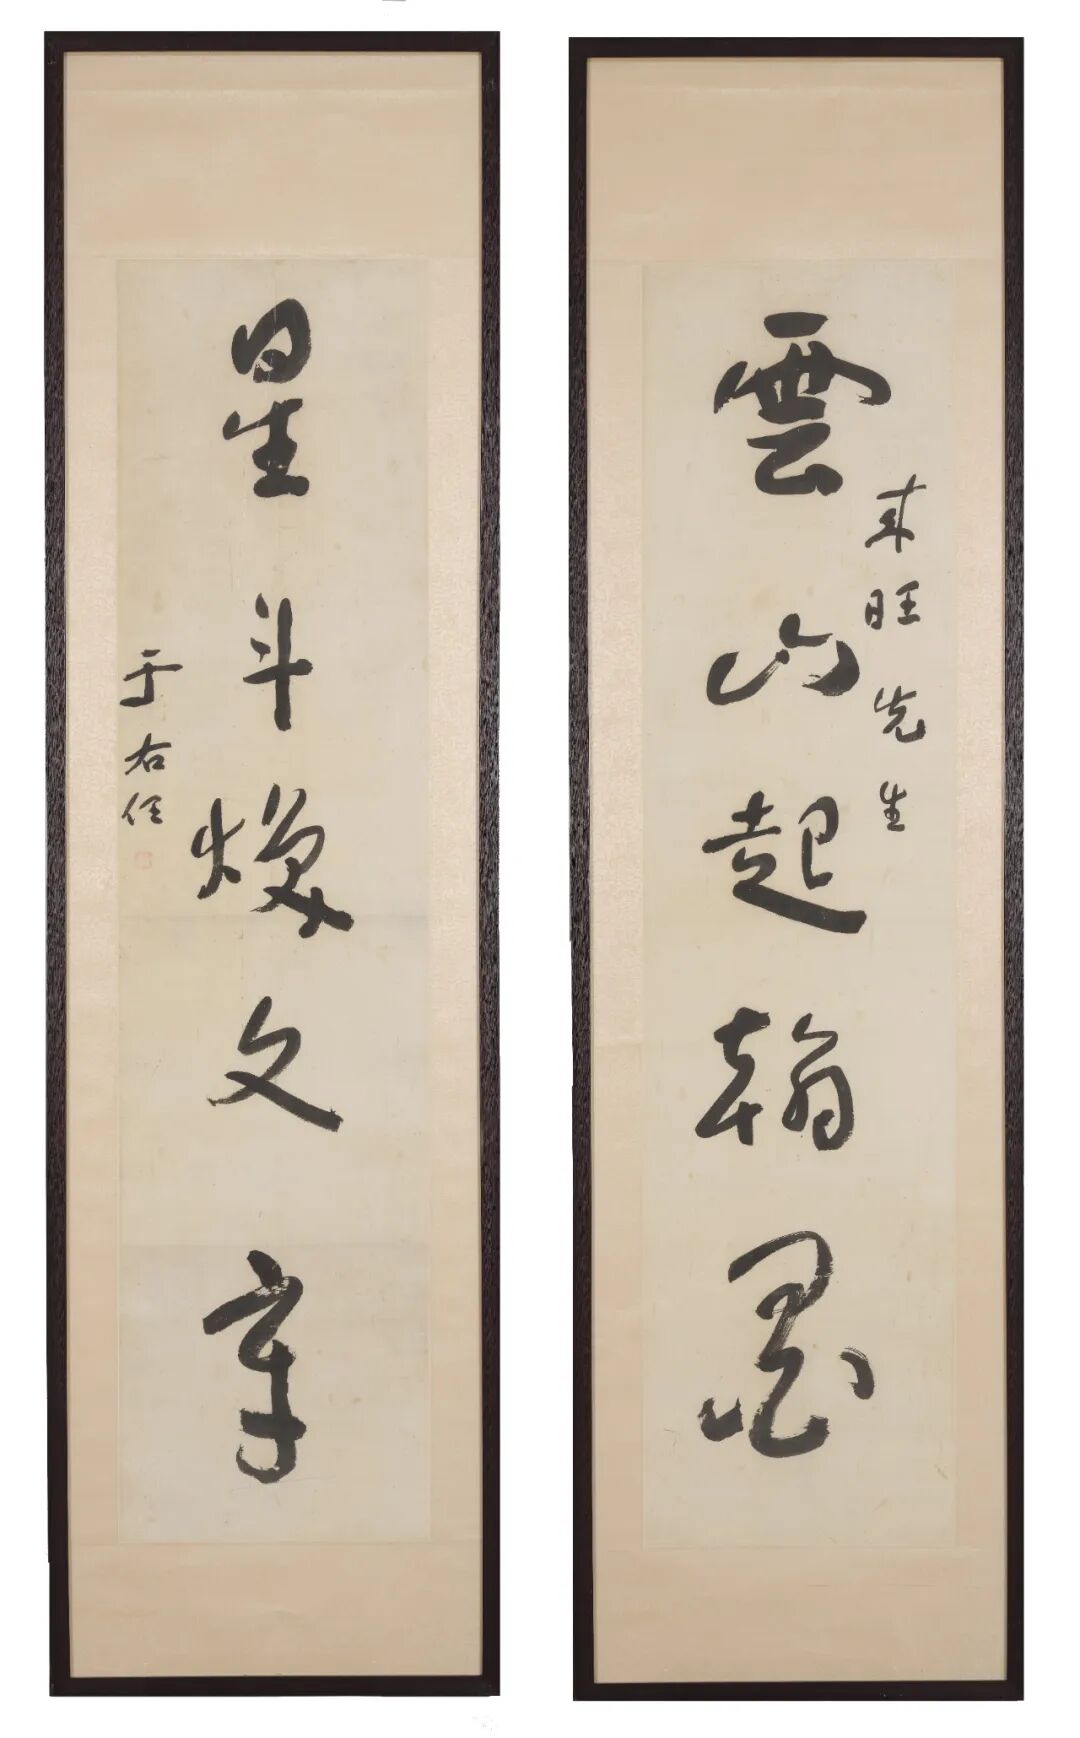 來旺先生
雲山起翰墨
星斗煥文章
于右任